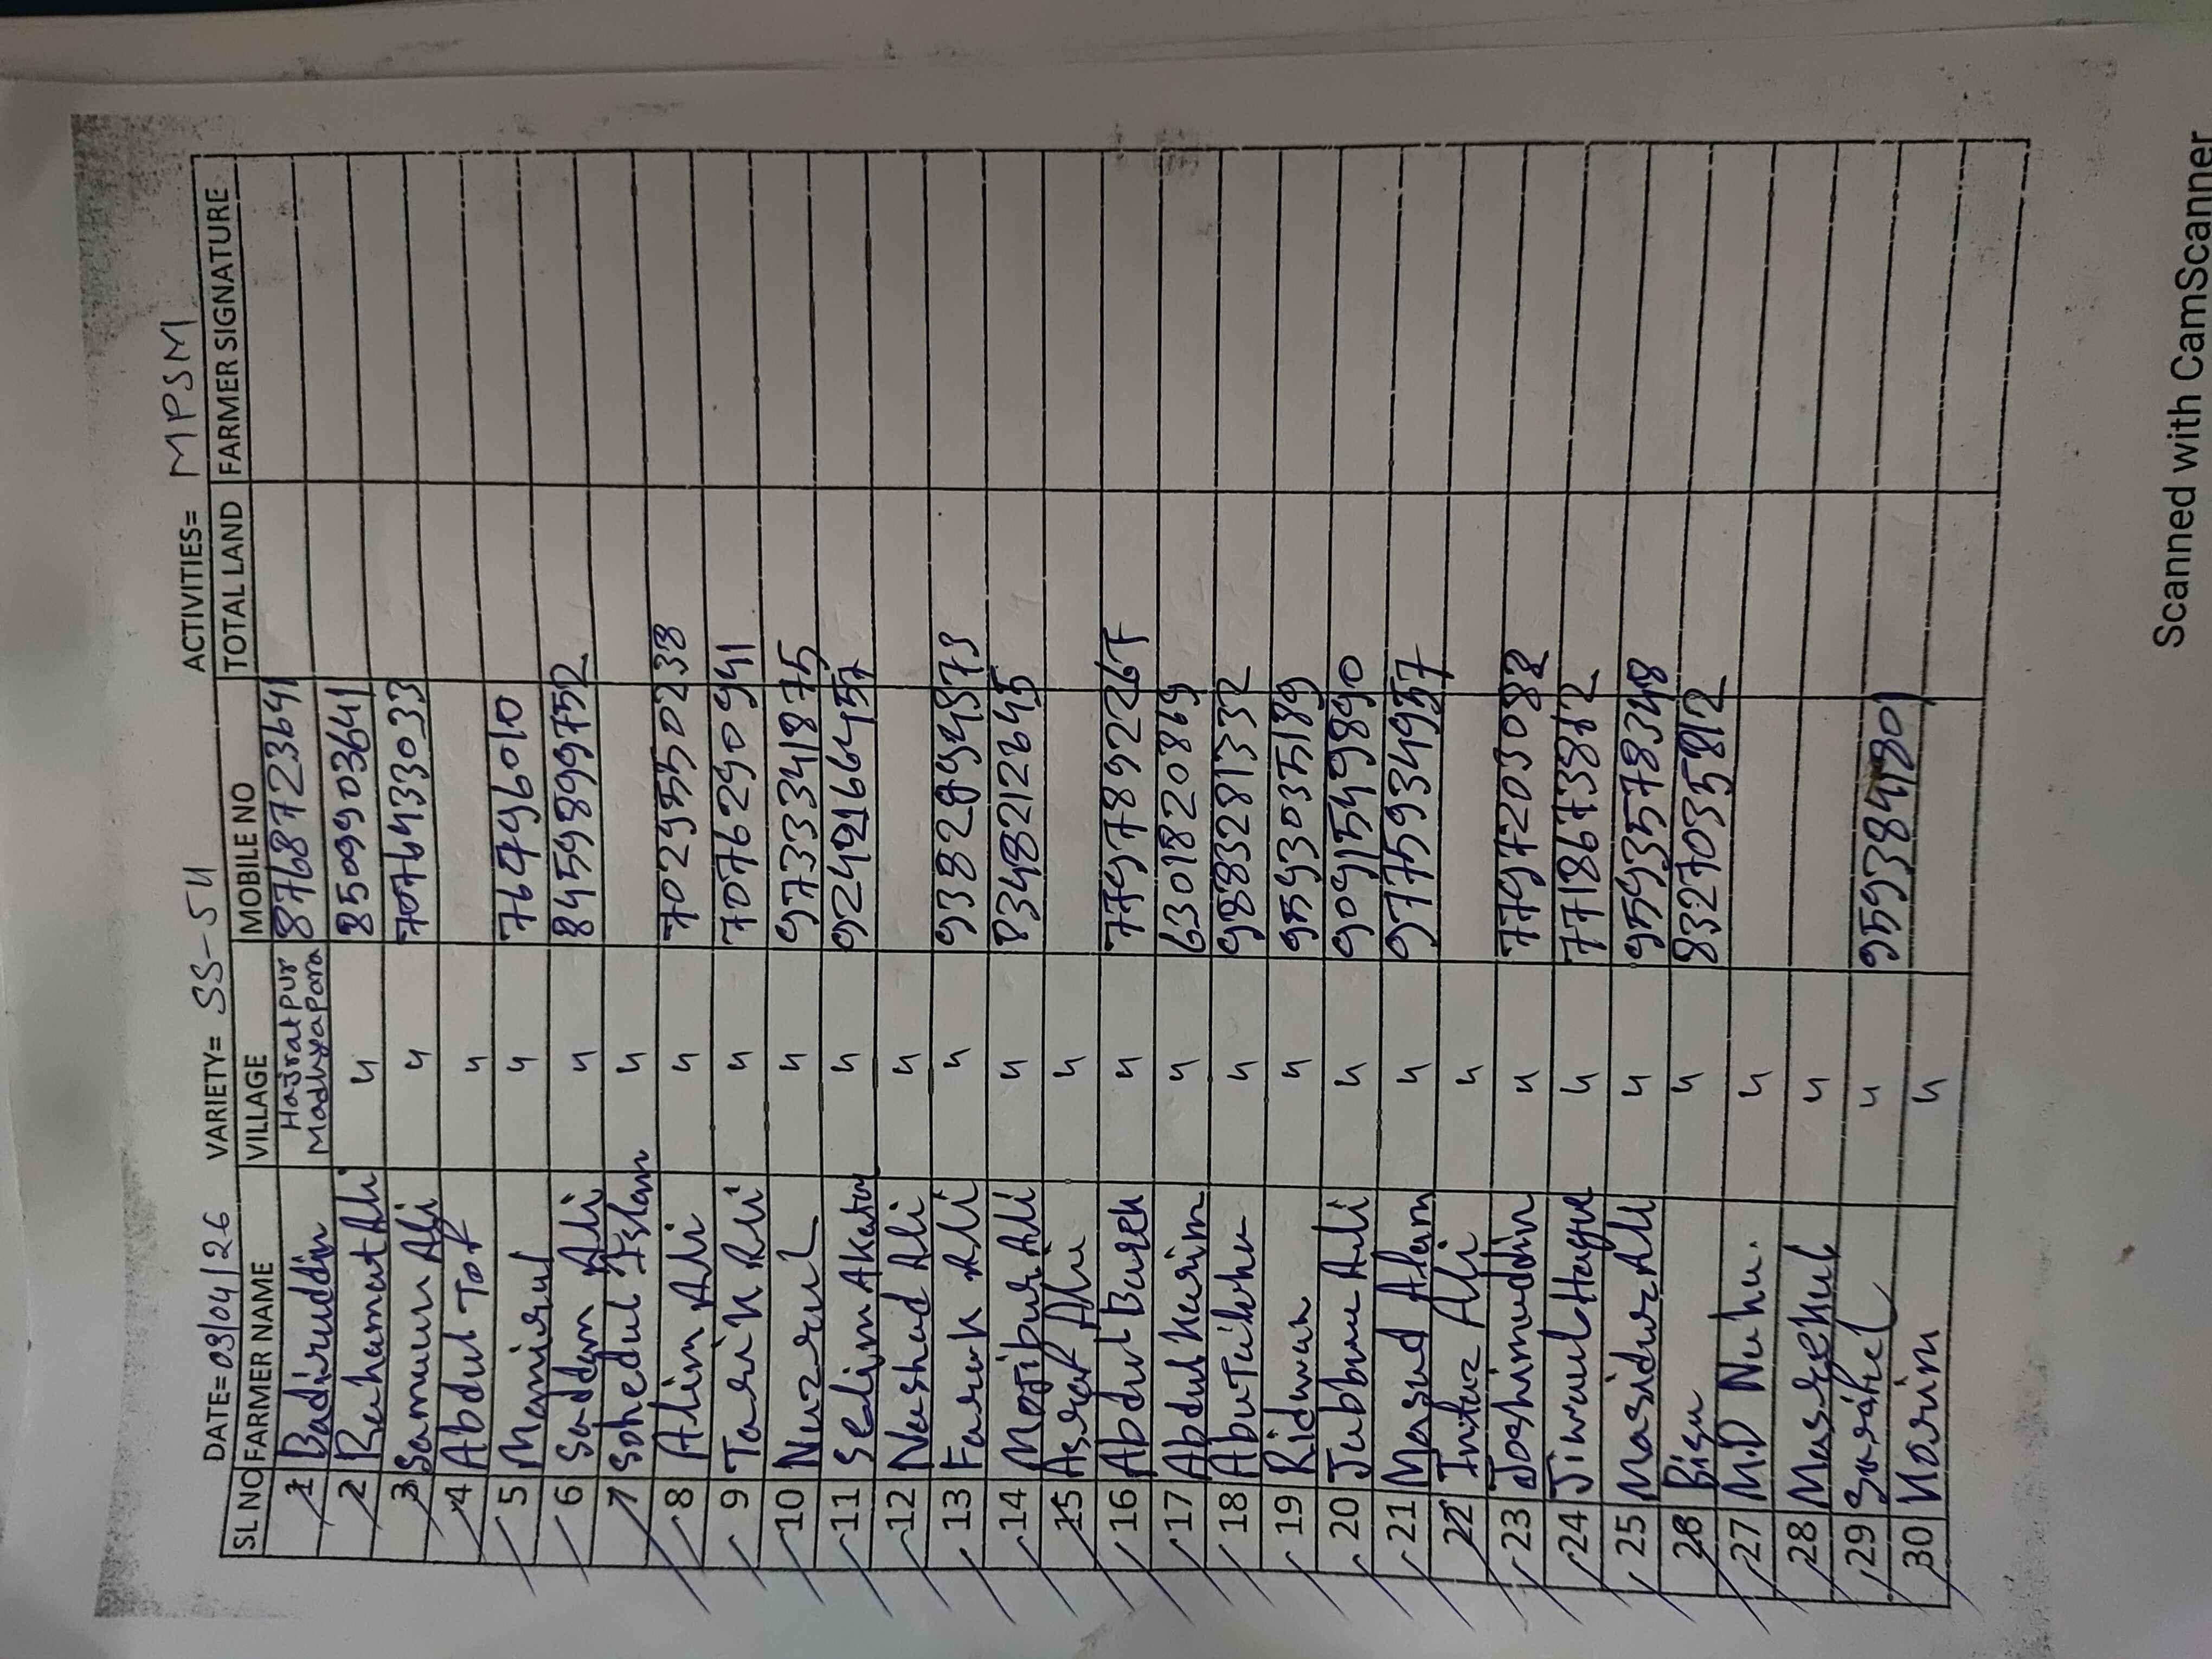 DATE= 03/04/26 VARIETY= SS-54 ACTIVITIES= MPSM
SL NO FARMER NAME VILLAGE MOBILE NO TOTAL LAND FARMER SIGNATURE
1 Badiruddin Hajratpur Madhyapara 8768723641
2 Rahamat Ali " 8509903641
3 Sameun Ali " 7076433033
4 Abdul Tof "
5 Manirul " 7647496010
6 Saddam Ali " 8459899752
7 Sohedul Islam "
8 Alim Ali " 7029550238
9 Tarik Ali " 7076290941
10 Nuzrul " 9733341875
11 Selim Akatar "
12 Naushad Ali "
13 Faruk Ali "
14 Mojibur Ali " 8348212645
15 Asraf Ali "
16 Abdul Barek " 7797892267
17 Abdul Karim " 6301820869
18 Abu Taleha " 9883281332
19 Ridwan " 9593035189
20 Jabbar Ali " 9091549890
21 Masud Alam " 9775934957
22 Intaz Ali "
23 Joshimuddin " 7797203082
24 Jiwaul Haque "
25 Masidur Ali " 9593578348
26 Bisu " 8327035812
27 M.D Nuhu. "
28 Masrekul "
29 "
30 Norim "
Scanned with CamScanner